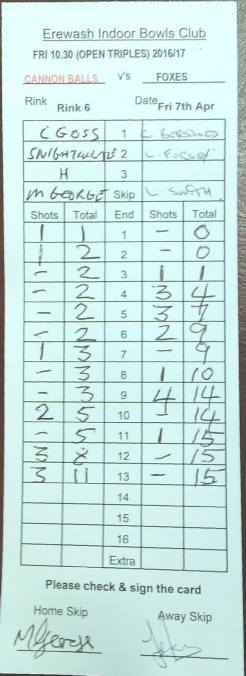 Erewash Indoor Bowls Club
FRI 10.30 (OPEN TRIPLES) 2016/17
CANNON BALLS V's FOXES
Rink Rink 6 Date Fri 7th Apr
C GOSS 1 C
2 L.
H 3
M GEORGE Skip L. SMITH
Shots Total End Shots Total
1 1 1 - 0
1 2 2 - 0
- 2 3 1 1
- 2 4 3 4
- 2 5 3 7
- 2 6 2 9
1 3 7 - 9
- 3 8 1 10
- 3 9 4 14
2 5 10 - 14
- 5 11 1 15
3 8 12 - 15
3 11 13 - 15
14
15
16
Extra
Please check & sign the card
Home Skip Away Skip
M George